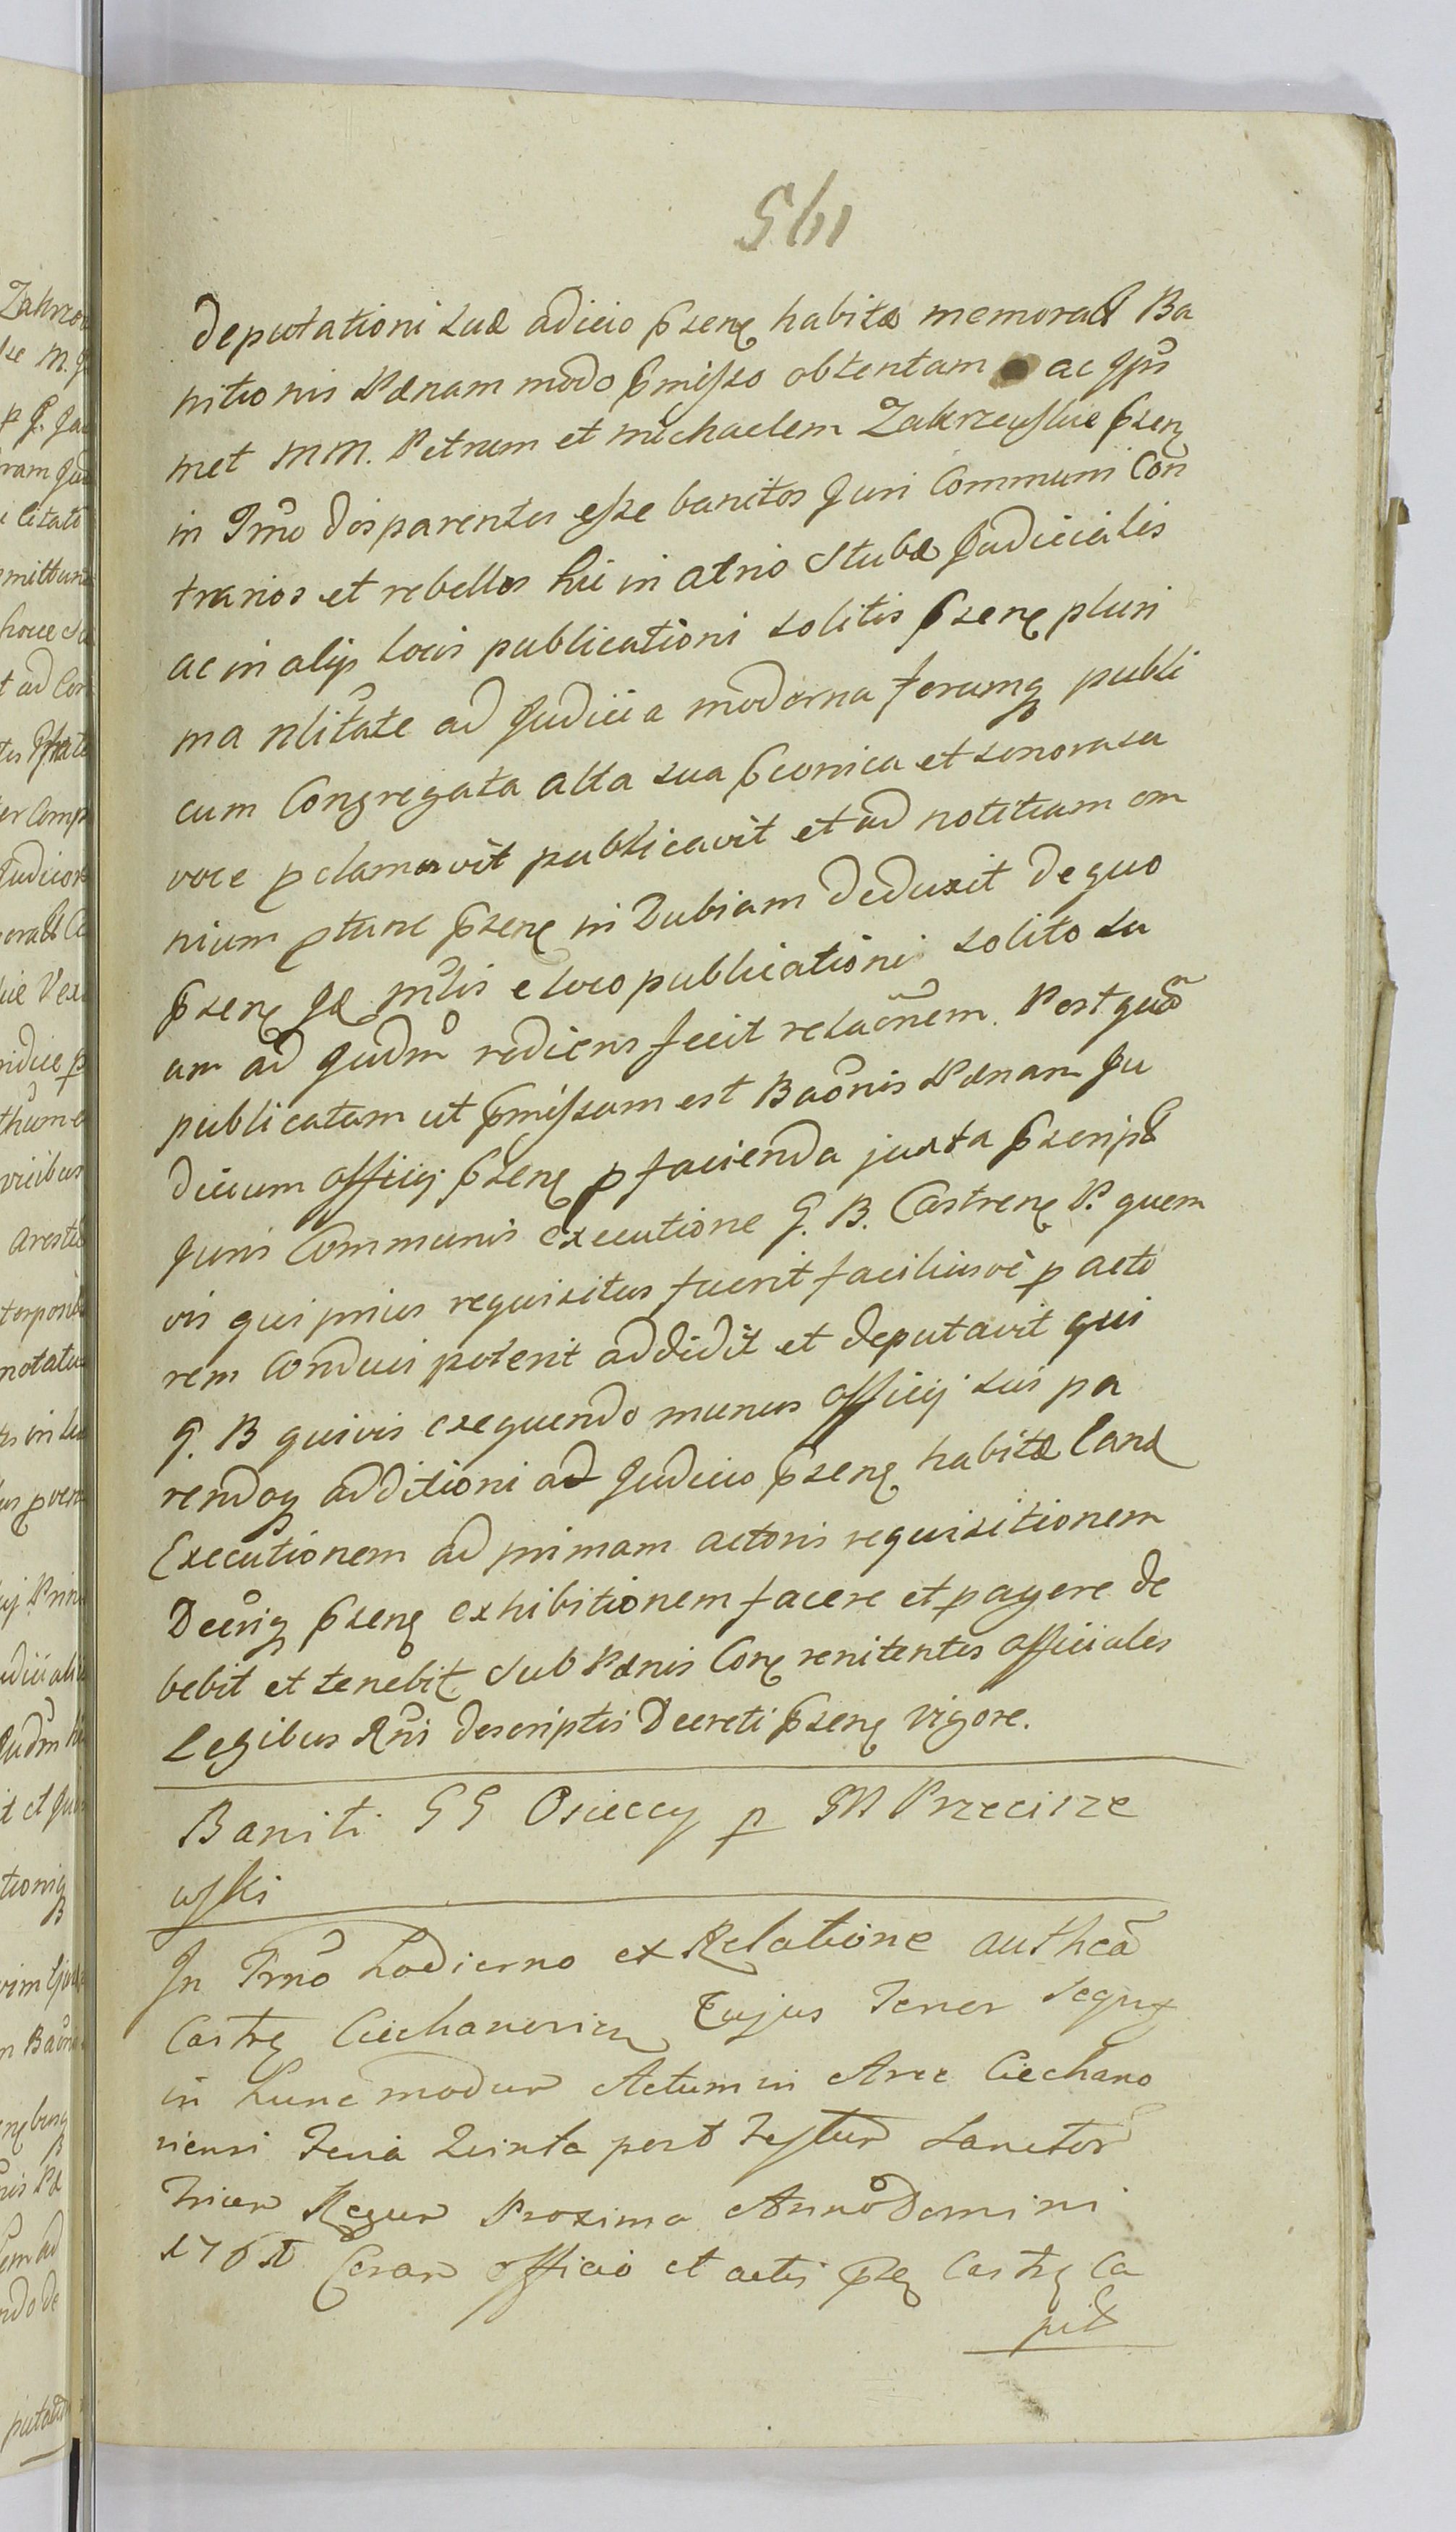 561
deputationi suæ adicio pseng habitæ memoratt Ba
nitionis Pænam modo pmisso obtentam ac ipsos
met MM. Petrum et Michaelem Zakrzewskie pseng
in Trno disparentes esse banitos Juri Communi Con
trarios et rebelles hic in atrio Stubæ Judicialis
ac in alijs locis publicationi solitis pseng pluri
ma nlitate ad Judicia moderna forumq publi
cum Congregata alta sua pconica et sonorosa
voce pclamavit publicavit et ad notitiam om
nium ptunc pseng in dubiam deduxit de quo
pseng Jæ mlis e loco publicationi solito su
am ad Judm rediens fecit relaonem. Post quã
publicatam ut pmissum est Baonis Pænam Ju
dicium officij pseng p facienda juxta pscript
Juris Communis executione G. B. Castreng P. quem
vis qui prius requisitus fuerit faciliusve p acto
rem conduci poterit addidit et deputavit qui
G. B quivis exequendo munus officij sui pa
rendoq additioni ad Judicio pseng habitæ eand
Executionem ad primam actoris requisitionem
Decriq pseng exhibitionem facere et pagere de
bebit et tenebit sub Pænis Cong renitentes officiales
Legibus Rni descriptis Decreti pseng vigore.
Baniti GG Osieccy p M Przecisze
wski
In Trno hodierno ex Relatione authca
Castrg Ciechanovien Cujus Tenor Sequr
in hunc modum Actum in Arce Ciechano
viensi Feria Quinta post Festum Sanctor
Trium Regum Proxima Anno Domini
Coram officio et actis pseg Castrg Ca
pit